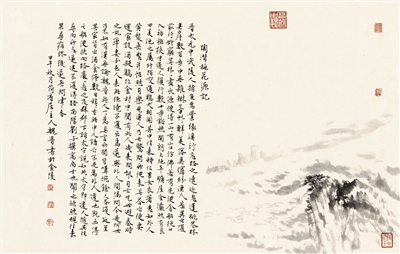 陶潛桃花源記
晉太元中武陵人捕魚為業緣溪行忘路之遠近忽逢桃花林
夾岸數百步中無雜樹芳草鮮美落英繽紛漁人甚異之復
前行欲窮其林林盡水源便得一山山有小口彷彿若有光便舍船從口
入初極狹才通人復行數十步豁然開朗土地平曠屋舍儼然有良
田美池桑竹之屬阡陌交通雞犬相聞其中往來種作男女衣著悉如外人
黃髮垂髫並怡然自樂見漁人乃大驚問所從來具答之便要
還家設酒殺雞作食村中聞有此人咸來問訊自云先世避秦時
亂率妻子邑人來此絕境不復出焉遂與外人間隔問今是何世
乃不知有漢無論魏晉此人一一為具言所聞皆歎惋餘人各復延至
其家皆出酒食停數日辭去此中人語云不足為外人道也既出得
其船便扶向路處處誌之及郡下詣太守說如此太守即遣人隨其往
尋向所誌遂迷不復得路南陽劉子驥高尚士也聞之欣然規往未
果尋病終後遂無問津者
甲午秋月 香居主人魏 書於金陵